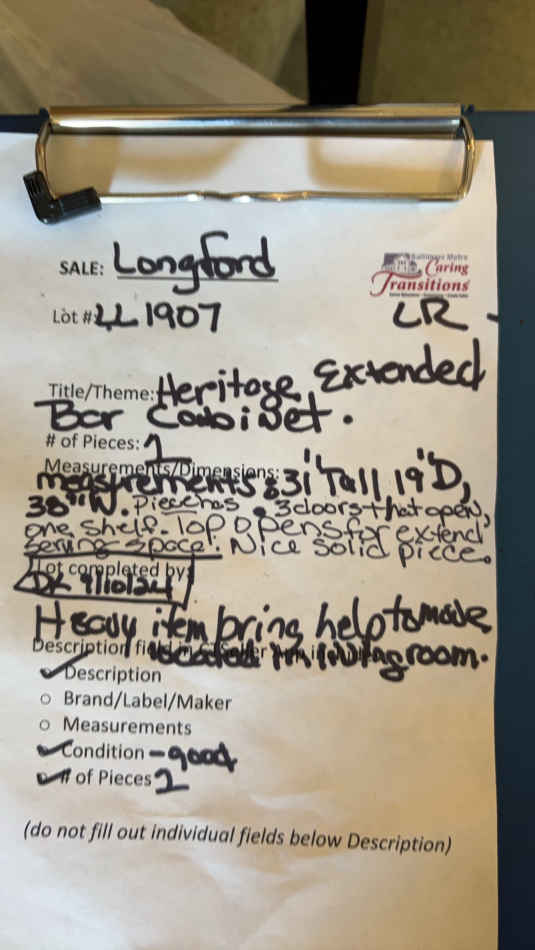 SALE: Longford
Baltimore Metro
Caring
Transitions
Lot #: LL 1907 LR -
Title/Theme: Heritage Extended
Bar Cabinet.
# of Pieces: 1
Measurements/Dimensions:
measurements: 31" Tall 19"D,
38"W. 3 doors that open,
one shelf. Top opens for extend
serving space. Nice solid piece.
Lot completed by:
DK 9/10/24
Heavy item/bring help to move
Description
located in living room.
Description
Brand/Label/Maker
Measurements
Condition - good
# of Pieces
(do not fill out individual fields below Description)